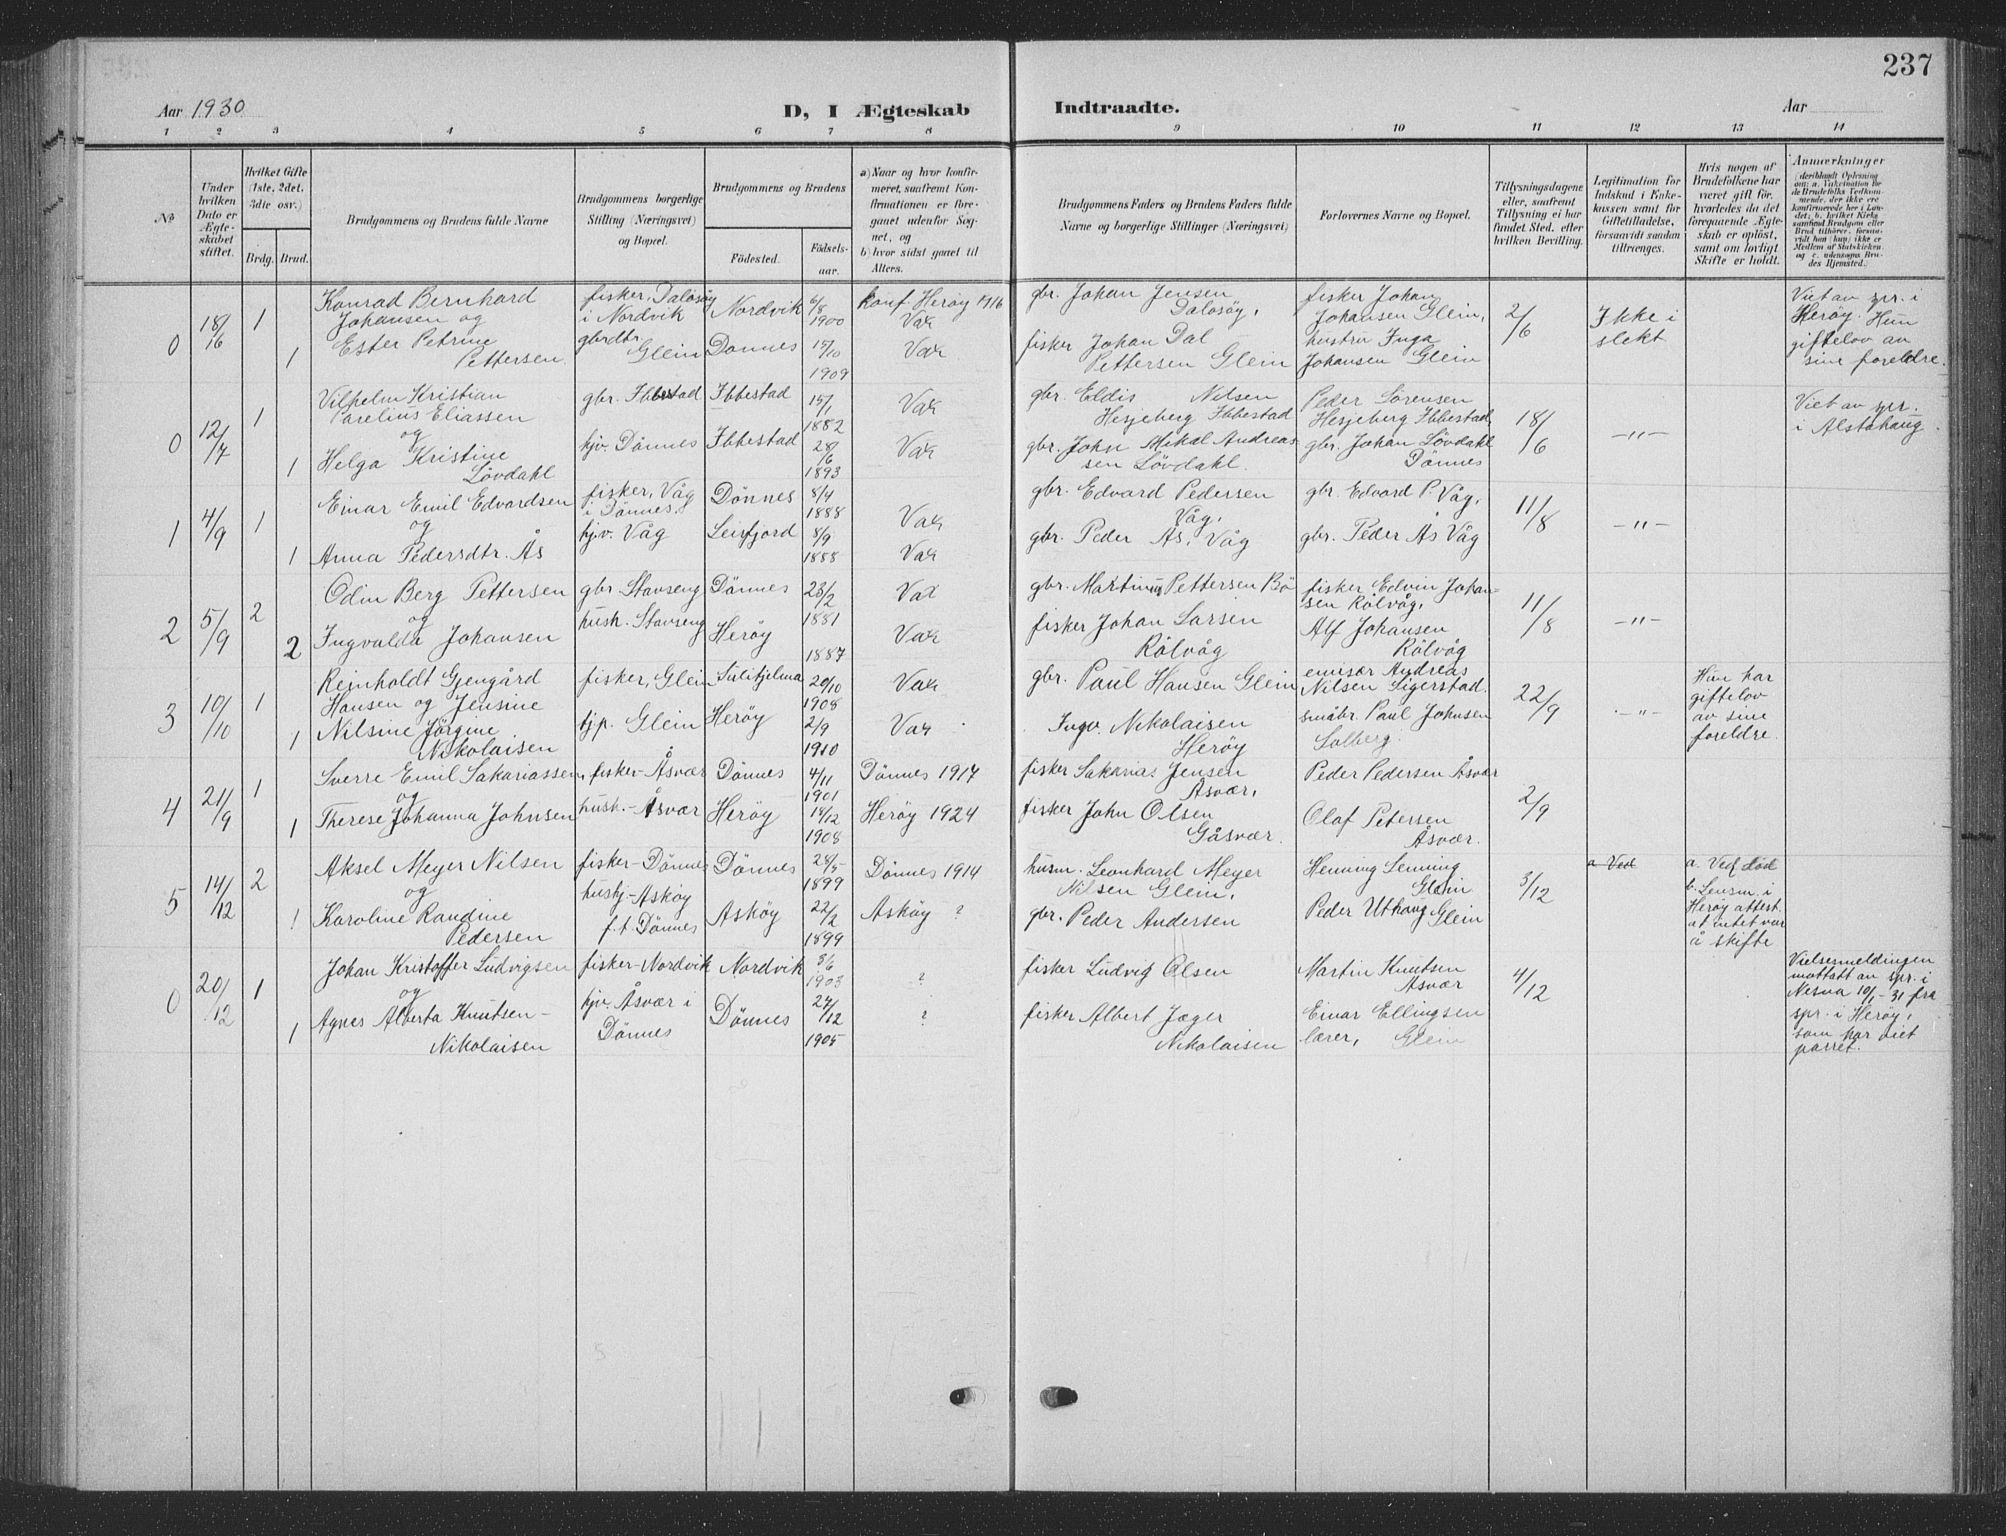 237
Aar 1930
D, I Ægteskab
Indtraadte.
Aar
1 2 3 4 5 6 7 8 9 10 11 12 13 14
No
Under hvilken Dato er Ægteskabet stiftet.
Hvilket Gifte (1ste, 2det, 3die osv.)
Brdg. Brud.
Brudgommens og Brudens fulde Navne
Brudgommens borgerlige Stilling (Næringsvei) og Bopæl.
Brudgommens og Brudens
Fødested.
Fødselsaar.
a) Naar og hvor konfirmeret, saafremt Konfirmationen er foreganet udenfor Sognet, og
b) hvor sidst gaaet til Alters.
Brudgommens Faders og Brudens Faders fulde Navne og borgerlige Stillinger (Næringsvei)
Forlovernes Navne og Bopæl.
Tillysningsdagene eller, saafremt Tillysning ei har fundet Sted, efter hvilken Bevilling.
Legitimation for Indskud i Enkekassen samt for Giftetilladelse, forsaavidt saadan tiltrænges.
Hvis nogen af Brudefolkene har været gift før, hvorledes da det foregaaende Ægteskab er opløst, samt om lovligt Skifte er holdt.
Anmærkninger
0 18/6 1 Konrad Bernhard Johansen og fisker, Dalosøy i Nordvik Nordvik 6/8 1900 konf Herøy 1916 Var
gbr. Johan Jensen Dalosøy, fisker Johan Johansen Glein, 2/6 Ikke i slekt
1 Ester Petrine Pettersen gbrdtr. Glein Dønnes 15/10 1909 Var
fisker Johan Dal Pettersen Glein hustru Inga Johansen Glein
Viet av spr. i Herøy. Hun giftelov av sine foreldre.
0 12/7 1 Vilhelm Kristian Parelius Eliassen og gbr. Ibbestad Ibbestad 15/1 1882 Var
gbr. Eldis Nilsen Hesjeberg Ibbestad Peder Sörensen Hesjeberg Ibbestad, 18/6 -"-
1 Helga Kristine Lövdahl hjv. Dönnes Ibbestad 28/6 1893 Var
gbr. Johan Mikal Andreassen Lövdahl. gbr. Johan Lövdahl Dönnes
Viet av spr. i Alstahaug.
1 4/9 1 Einar Emil Edvardsen og fisker, Våg i Dønnes. Dönnes 8/4 1888 Var
gbr. Edvard Pedersen Våg, gbr. Edvard P. Våg, 11/8 -"-
1 Anna Pedersdtr. Ås hjv. Våg Leirfjord 8/9 1888 Var
gbr. Peder Ås, Våg gbr. Peder Ås Våg
2 5/9 2 Odin Berg Pettersen og gbr. Stavseng Dönnes 23/2 1881 Var
gbr. Martinus Pettersen Bö fisker Edvin Johansen Rölvåg, 11/8 -"-
2 Ingvalda Johansen hush. Stavseng Herøy 1887 Var
fisker Johan Larsen Rölvåg Alf Johansen Rölvåg
3 10/10 1 Reinholdt Gjengård Hansen og Jensine fisker, Glein Sulitjelma 20/10 1908 Var
gbr. Paul Hansen Glein emisær Andreas Nilsen Sigerstad. 22/9 -"-
1 Nilsine Jörgine Nikolaisen hjp. Glein Herøy 2/9 1910 Var
Ingv. Nikolaisen Herøy småbr. Paul Johnsen Solberg.
Hun har giftelov av sine foreldre.
4 21/9 1 Sverre Emil Sakariassen, og fisker-Åsvær Dönnes 4/11 1901 Dönnes 1917
fisker Sakarias Jensen Åsvær, Peder Pedersen Åsvær 2/9
1 Therese Johanna Johnsen hush.-Åsvær Herøy 14/12 1908 Herøy 1924
fisker John Olsen Gåsvær. Olaf Petersen Åsvær.
5 14/12 2 Aksel Meyer Nilsen og fisker-Dönnes Dönnes 28/5 1899 Dönnes 1914
husm. Leonhard Meyer Nilsen Glein, Henning Lenning Glein 3/12 a Ved
1 Karoline Randine Pedersen hushj-Askøy f.t. Dönnes Askøy 22/2 1899 Askøy ?
gbr. Peder Andersen Peder Uthaug Glein
a. Ved död b. Lensm. i Herøy attest. at intet var å skifte
0 20/12 1 Johan Kristoffer Ludvigsen og fisker-Nordvik Nordvik 3/6 1903 ?
fisker Ludvig Olsen Martin Knutsen Åsvær 4/12
1 Agnes Alberta Knutsen-Nikolaisen hjv. Åsvær i Dönnes Dönnes 27/12 1905 ?
fisker Albert Jæger Nikolaisen Einar Ellingsen lærer, Glein
Vielsesmeldingen mottatt av spr. i Nesna 10/1-31 fra spr. i Herøy, som har viet parret.